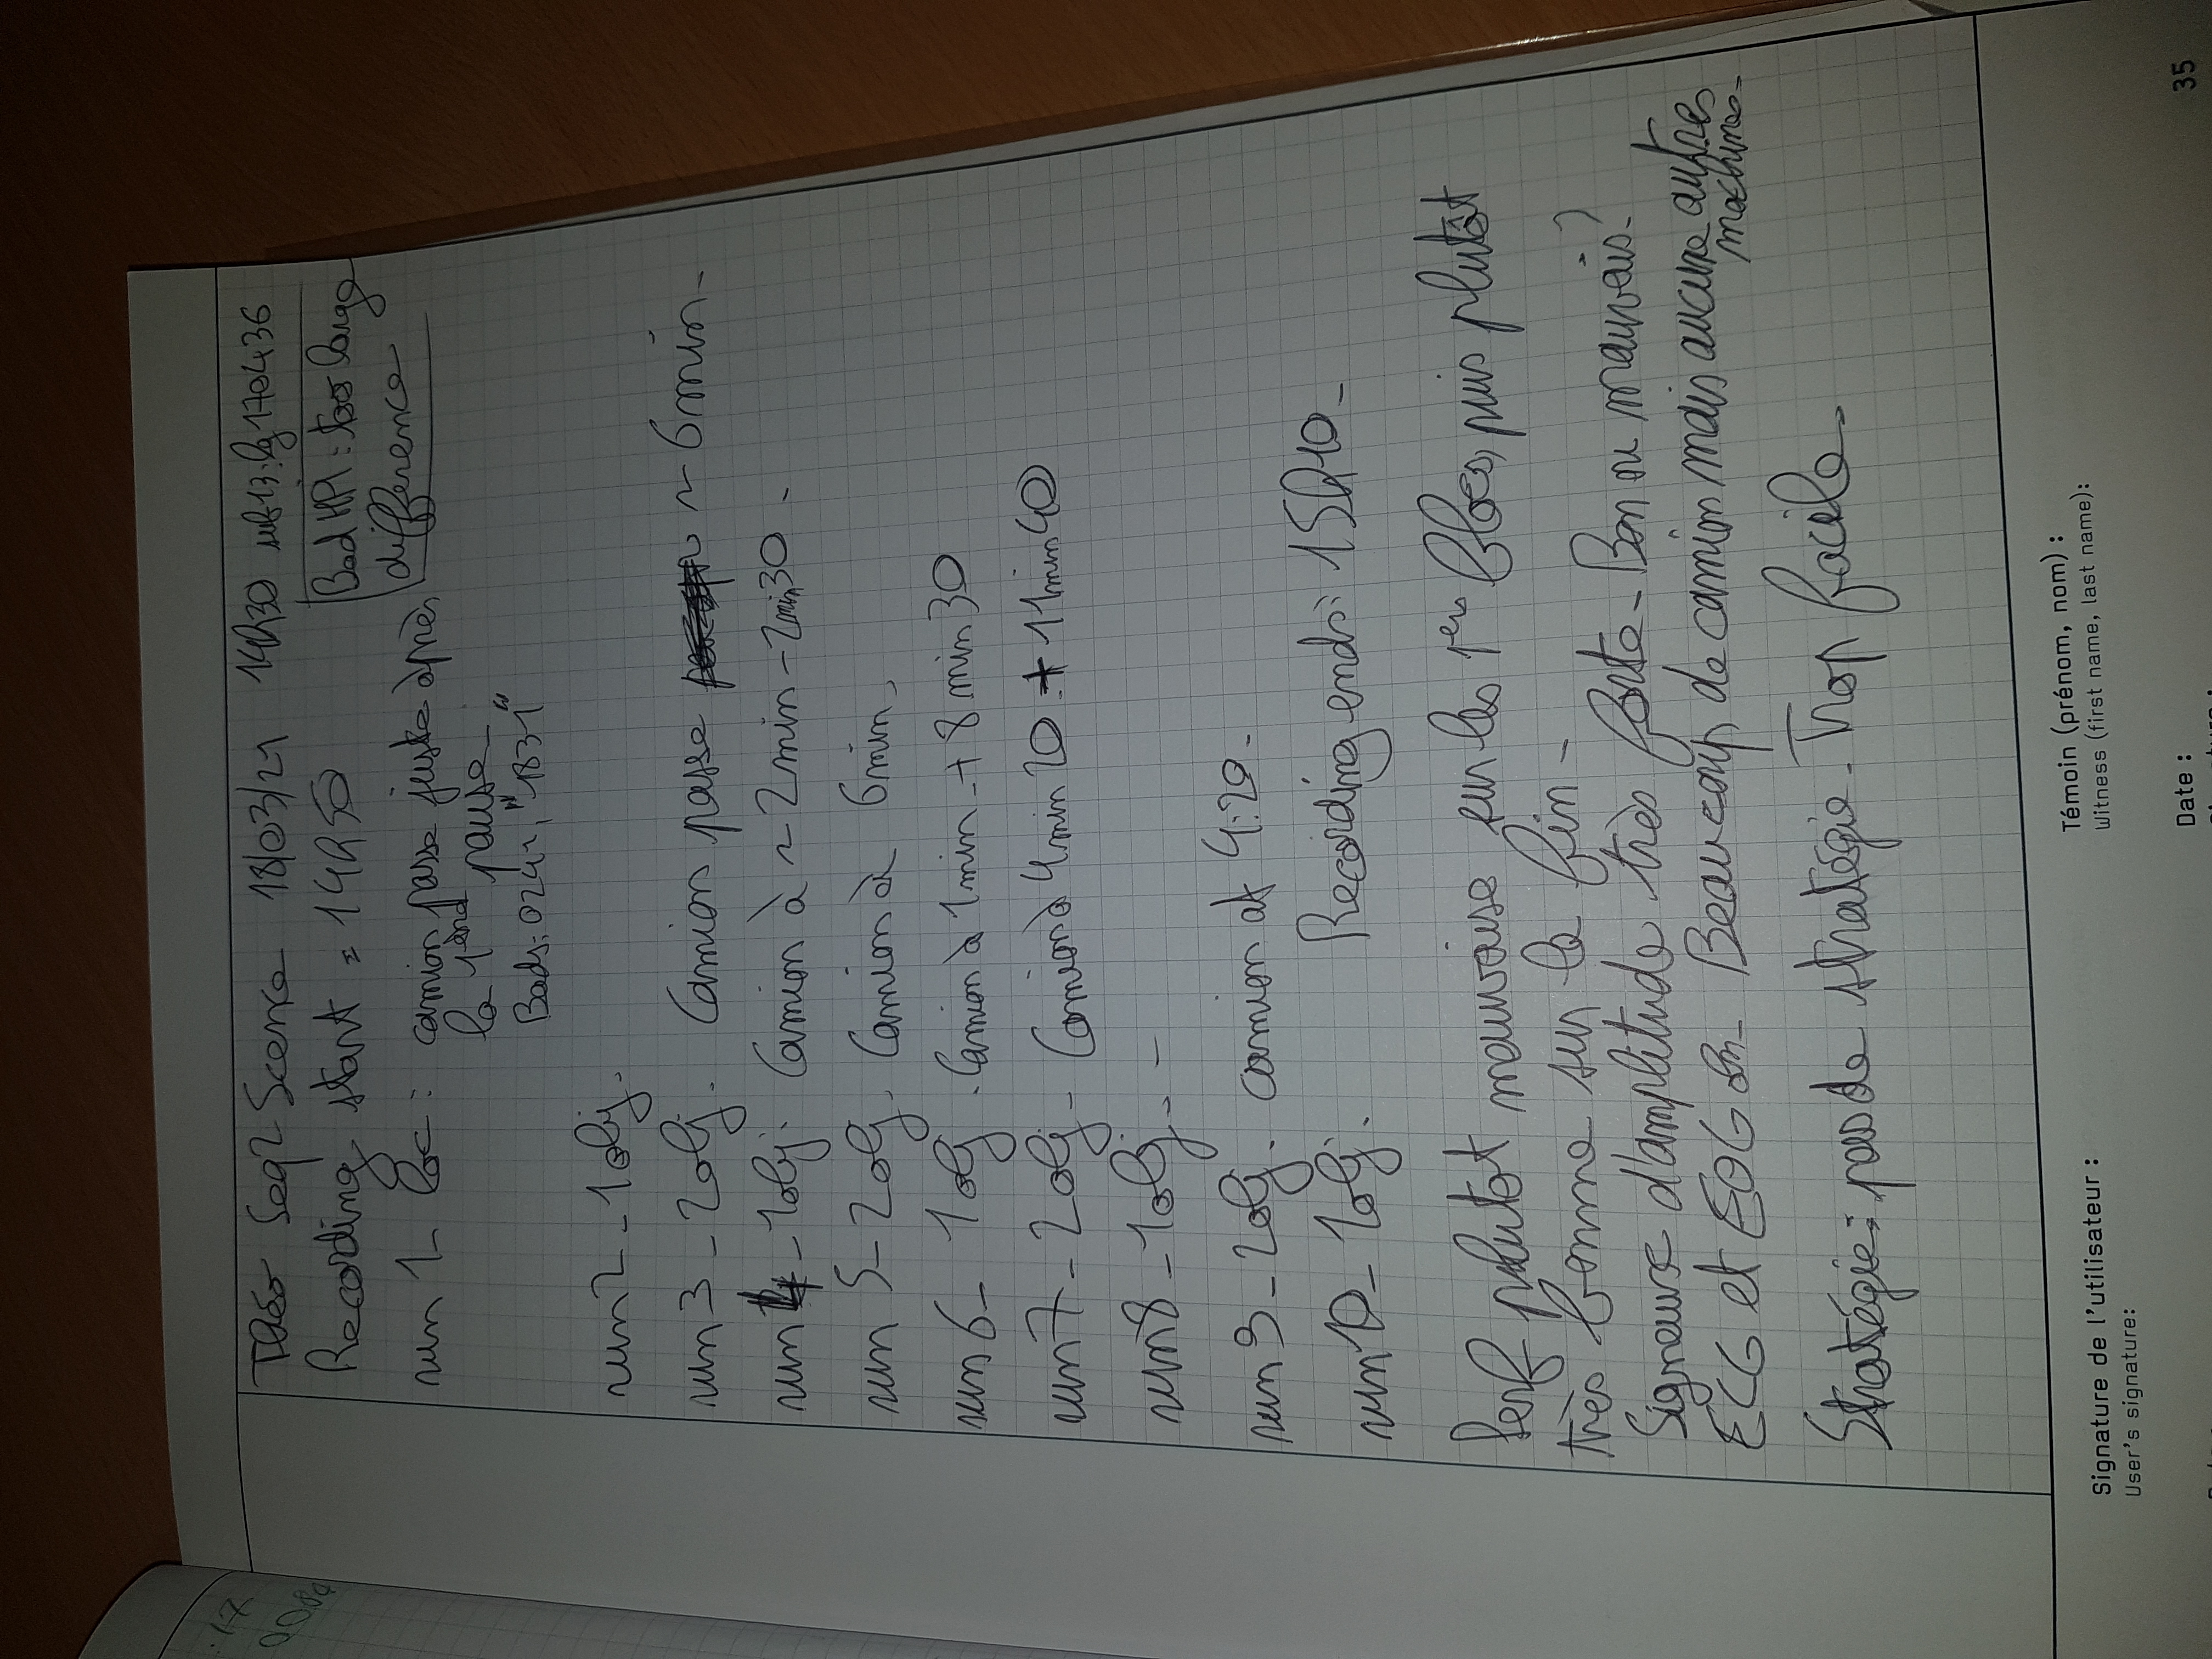 : 17
0084
Théo Seq2Scence 18/03/21 14h30 sub13: lg170436
Recording start = 14h50
Bad HPI : too large
difference
run 1_ loc : camion passe juste après
la 1end pause.
Bads: 0241, "1831"
run2 - 1obj.
run 3 - 2obj. Camion passe ~ 6min.
run 4 - 1obj. Camion à ~ 2min - 2min30.
run 5 - 2obj. Camion à 6min.
run 6 - 1obj. Camion à 1min + 8min30
run 7 - 2obj - Camion à 4min20 + 11min40
run 8 - 1obj. -
run 9 - 2obj. camion at 4:20.
run 10 - 1obj. Recording ends: 15h10.
Perf plutot mauvaise sur les 1ers blocs, puis plutôt
très bonne sur la fin -
Signaux d'amplitude très forte - Bon ou mauvais?
ECG et EOG on - Beaucoup de camion mais aucune autres
machines.
Stratégie: pas de stratégie. Trop facile.
Signature de l'utilisateur :
User's signature:
Témoin (prénom, nom) :
Witness (first name, last name):
Date :
35